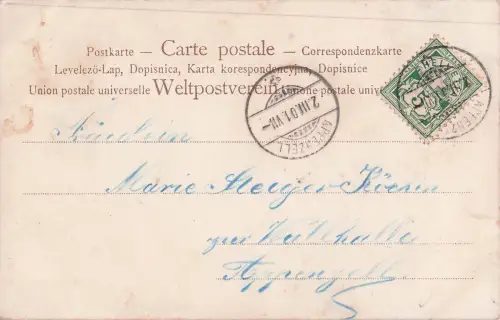 Postkarte – Carte postale – Correspondenzkarte
Levelezö-Lap, Dopisnica, Karta korespondencyjna, Dopisnice
Union postale universelle Weltpostverein Unione postale univer
APPENZELL
2.III.01.VII–
5
Fräulein
Marie Steiger
zur Wallhalla
Appenzell